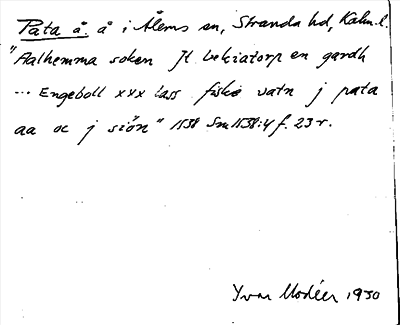 Pata å. å i Ålems sn, Stranda hd, Kalm. l.
"Aalhemma soken Jt bekiatorp en gardh
... Engeboll xxx lass fiske vatn j pata
aa oc j siön" 1538 Sm 1538:4 f. 23 r.
Yvar Modéer 1930